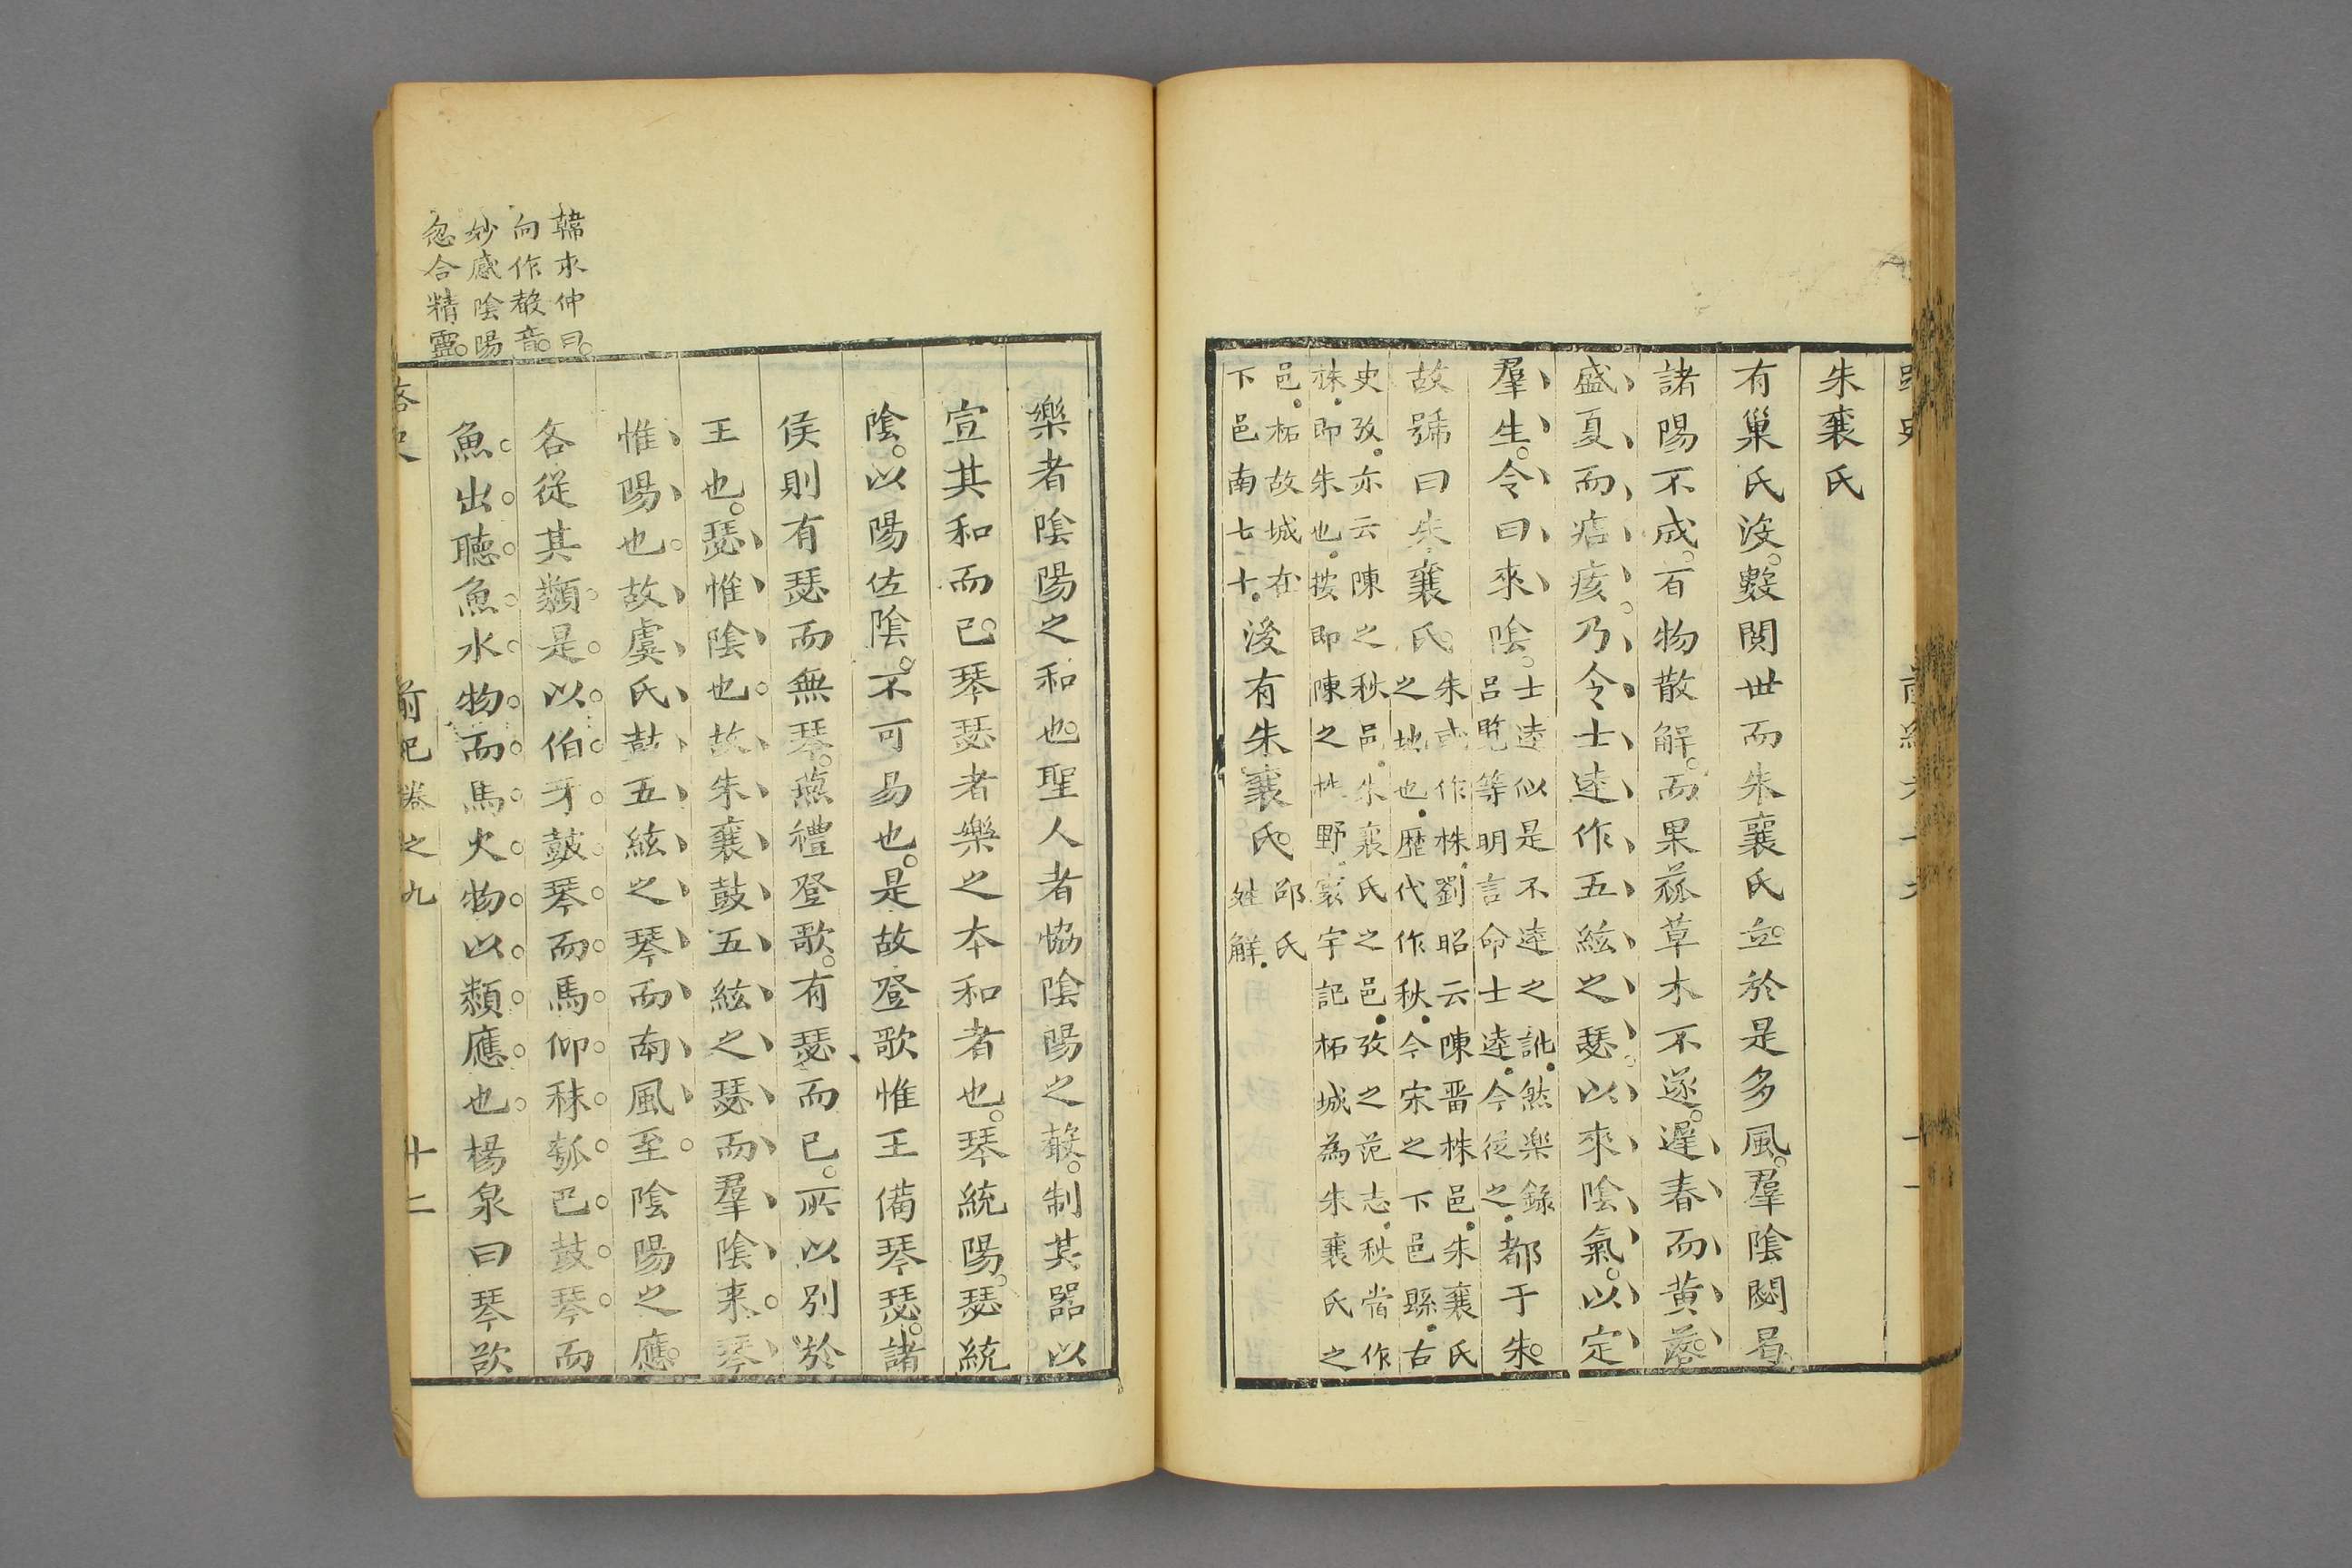 朱襄氏
有巢氏沒。數閱世而朱襄氏立。於是多風。羣陰閟曷。
諸陽不成。百物散解。而果蓏草木不遂。遲春而黃落。
盛夏而痁痎。乃令士逵作五絃之瑟。以來陰氣。以定
羣生。令曰來陰。
士逵似是不逵之訛。然樂錄
呂覧等明言命士逵。今從之。
都于朱。
故號曰朱襄氏。
朱或作株。劉昭云陳晋株邑。朱襄氏
之地也。歷代作秋。今宋之下邑縣。右
史攷。亦云陳之秋邑。朱襄氏之邑。攷之范志。秋當作
株。即朱也。按即陳之野。寰宇記柘城為朱襄氏之
邑。柘故城在
下邑南七十。
後有朱襄氏。
邵氏
姓解。
樂者陰陽之和也。聖人者恊陰陽之聲。制其器以
宣其和而已。琴瑟者樂之本和者也。琴統陽。瑟統
陰。以陽佐陰。不可易也。是故登歌惟王備琴瑟。諸
侯則有瑟而無琴。燕禮登歌。有瑟而已。所以別於
王也。瑟惟陰也。故朱襄鼓五絃之瑟而羣陰来。琴
惟陽也。故虞氏鼓五絃之琴而南風至。陰陽之應。
各從其類。是以伯牙鼓琴而馬仰秣。瓠巴鼓琴而
魚出聽。魚水物而馬火物。以類應也。楊泉曰琴欲
韓求仲曰。
向作散音。
妙感陰陽
忽合精靈。
前紀卷之九
十二